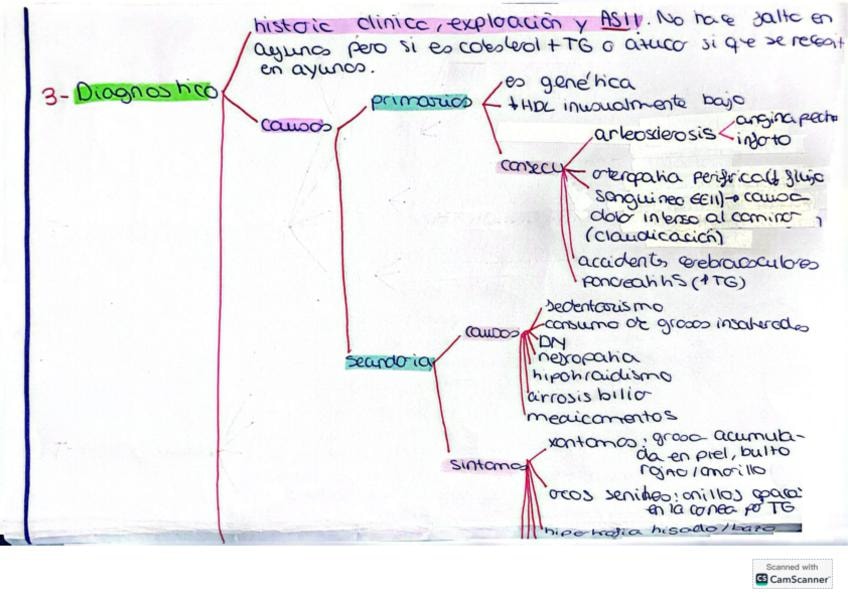 historia clínica, exploración y AS!!. No hace falta en
ayunas pero si es colesterol + TG o átuco si que se necesit
en ayunas.
3- Diagnostico
causas
primarias
es genética
↓HDL inusualmente bajo
consecu
arteosclerosis
angina pecho
infarto
arteropatia periférica (↓ flujo
sanguineo EEII) → causa
dolor intenso al caminar
(claudicación)
accidents cerebrovasculares
pancreatitis (↑TG)
secundaria
causas
sedentarismo
consumo de grasas insaturadas
DM
nefropatia
hipotiroidismo
cirrosis biliar
medicamentos
sintomas
xantomas: grasa acumula-
da en piel, bulto
rojno/amarillo
arcos seniles: anillos apar
en la cornea por TG
hipertrofia higado/bazo
Scanned with
CS CamScanner